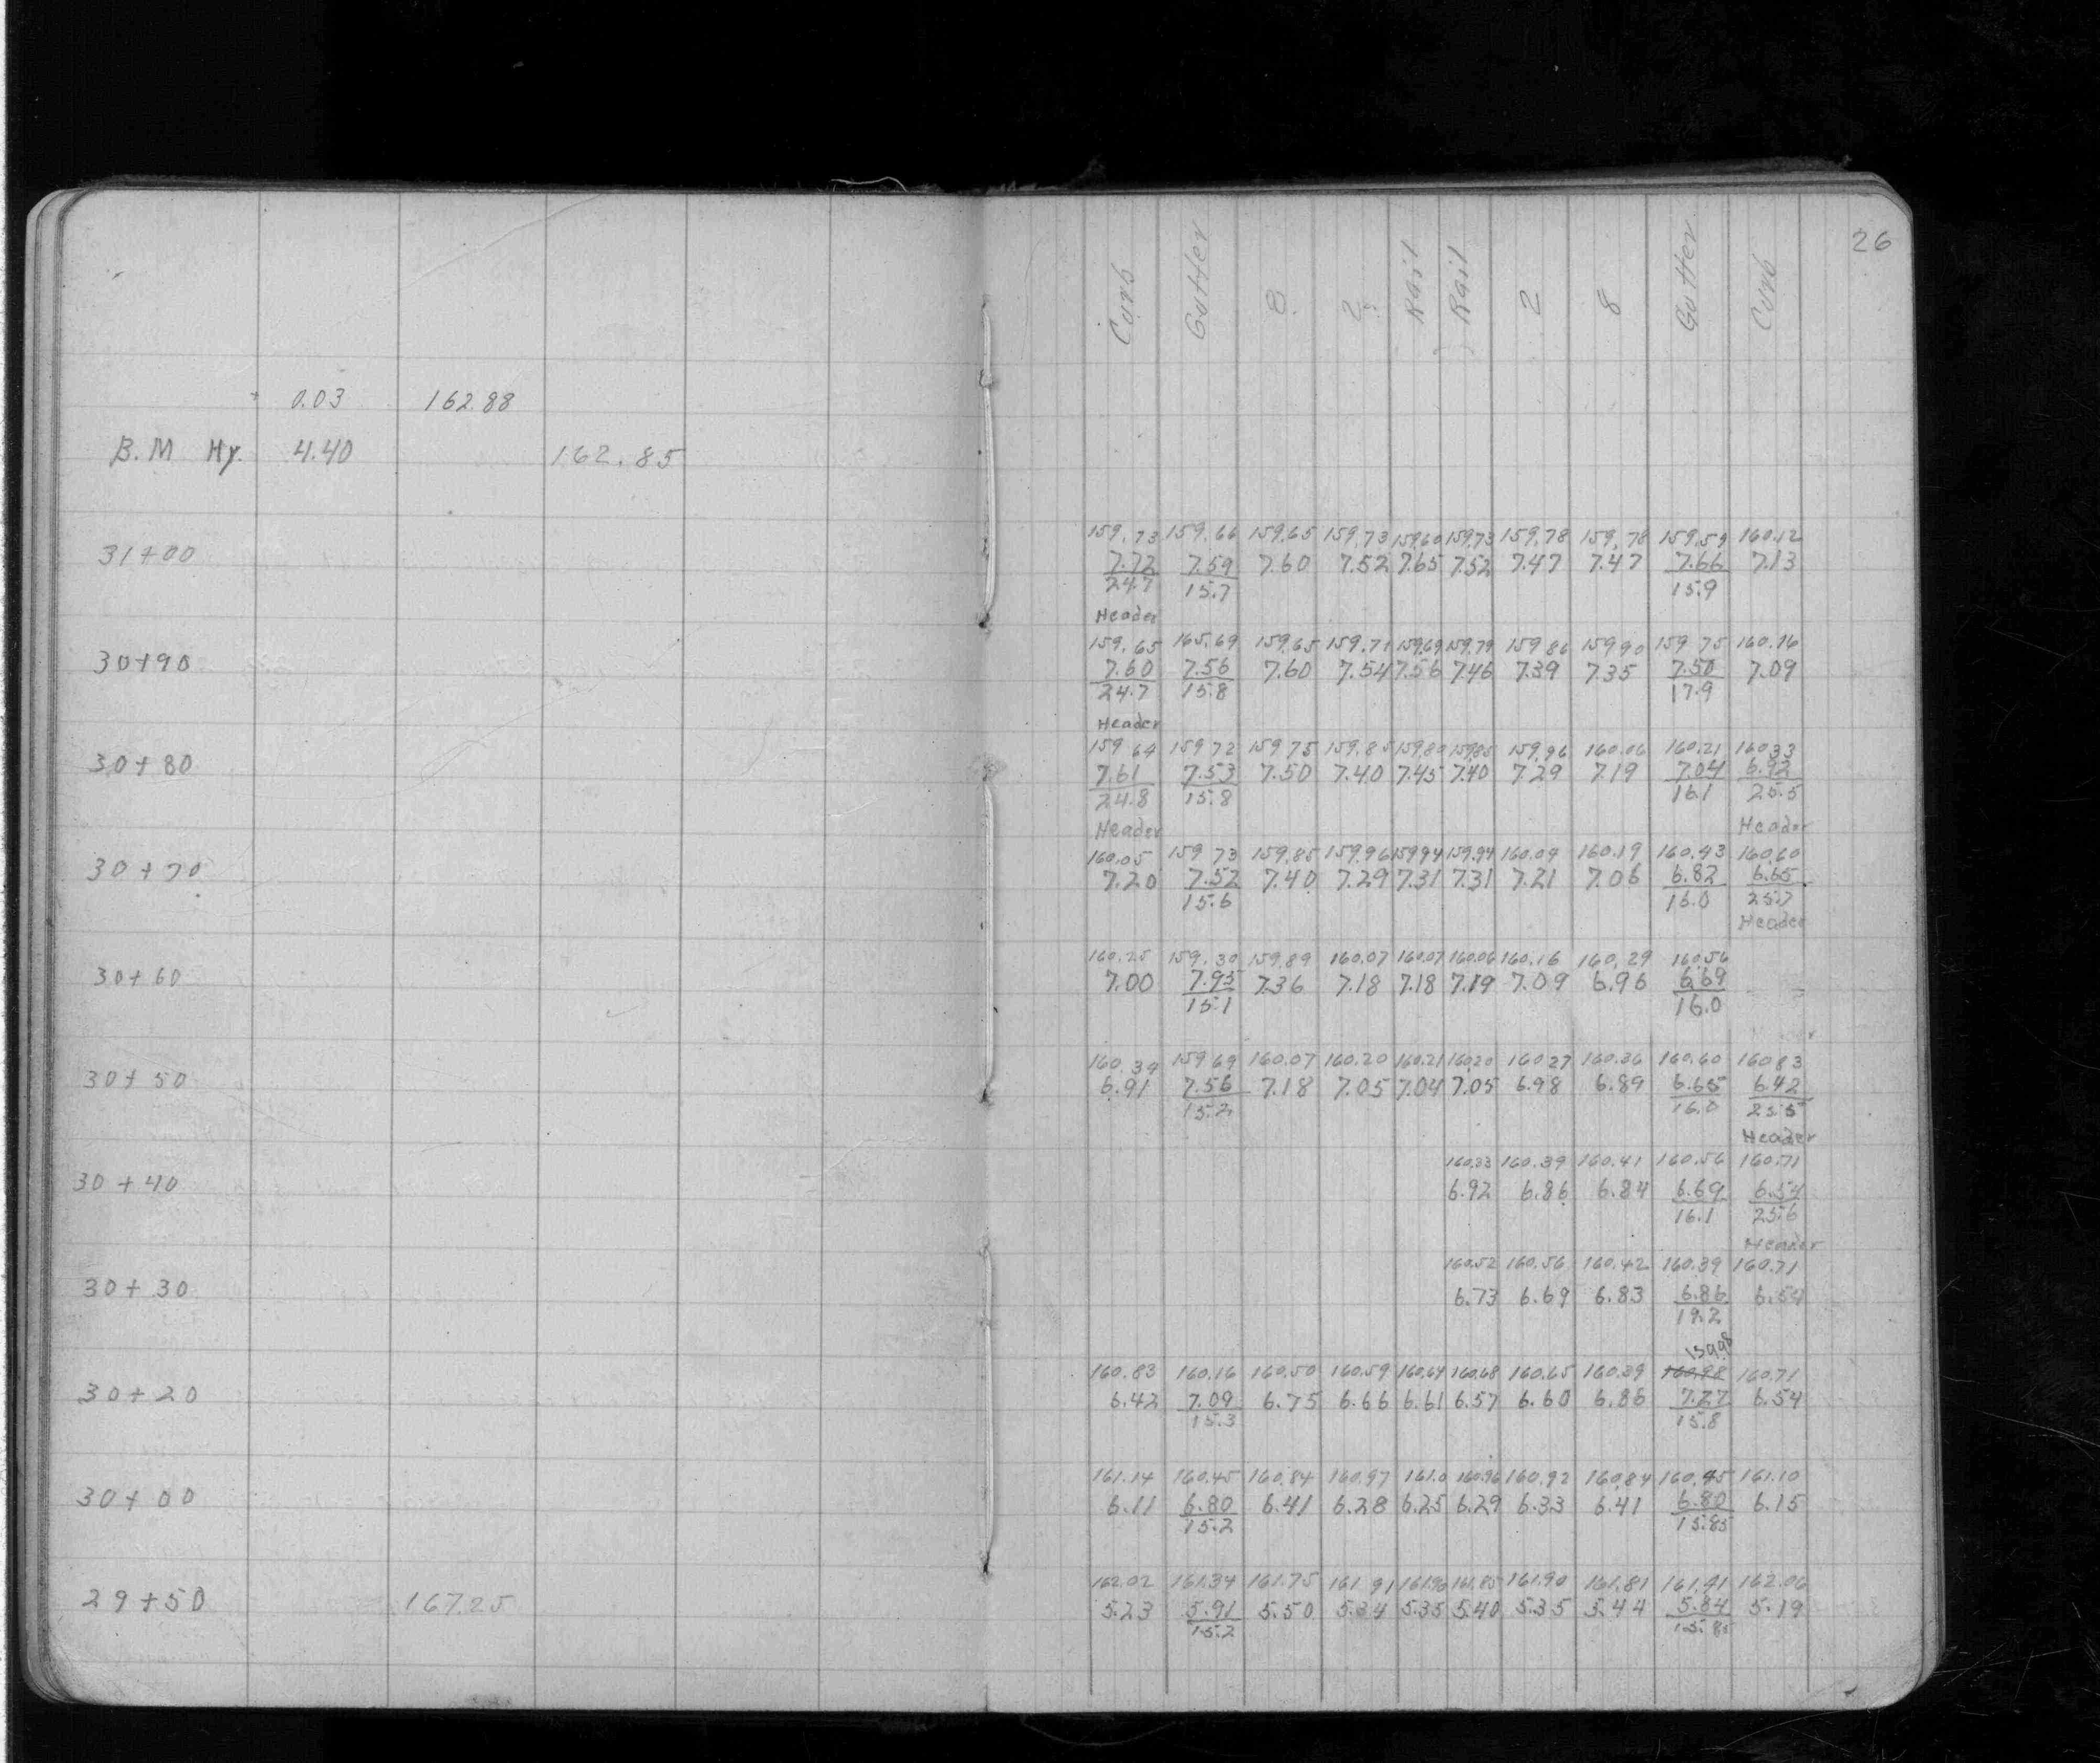 26
Curb Gutter 8 2 Rail Rail 2 8 Gutter Curb
+ 0.03 162.88
B.M Hy. 4.40 162.85
159.73 159.66 159.65 159.73 159.60 159.73 159.78 159.78 159.59 160.12
31+00 7.72 7.59 7.60 7.52 7.65 7.52 7.47 7.47 7.66 7.13
24.7 15.7 15.9
Header
159.65 165.69 159.65 159.71 159.69 159.79 159.86 159.90 159.75 160.16
30+90 7.60 7.56 7.60 7.54 7.56 7.46 7.39 7.35 7.50 7.09
24.7 15.8 17.9
Header
159.64 159.72 159.75 159.85 159.80 159.85 159.96 160.06 160.21 160.33
30+80 7.61 7.53 7.50 7.40 7.45 7.40 7.29 7.19 7.04 6.92
24.8 15.8 16.1 25.5
Header Header
160.05 159.73 159.85 159.96 159.94 159.94 160.04 160.19 160.43 160.60
30+70 7.20 7.52 7.40 7.29 7.31 7.31 7.21 7.06 6.82 6.65
15.6 16.0 25.7
Header
160.25 159.30 159.89 160.07 160.07 160.06 160.16 160.29 160.56
30+60 7.00 7.95 7.36 7.18 7.18 7.19 7.09 6.96 6.69
15.1 16.0
160.34 159.69 160.07 160.20 160.21 160.20 160.27 160.36 160.60 160.83
30+50 6.91 7.56 7.18 7.05 7.04 7.05 6.98 6.89 6.65 6.42
15.2 16.0 25.5
Header
160.33 160.39 160.41 160.56 160.71
30+40 6.92 6.86 6.84 6.69 6.54
16.1 25.6
Header
160.52 160.56 160.42 160.39 160.71
30+30 6.73 6.69 6.83 6.86 6.54
19.2
159.98
160.83 160.16 160.50 160.59 160.64 160.68 160.65 160.39 160.98 160.71
30+20 6.42 7.09 6.75 6.66 6.61 6.57 6.60 6.86 7.27 6.54
15.3 15.8
161.14 160.45 160.84 160.97 161.0 160.96 160.92 160.84 160.45 161.10
30+00 6.11 6.80 6.41 6.28 6.25 6.29 6.33 6.41 6.80 6.15
15.2 15.85
162.02 161.34 161.75 161.91 161.90 161.85 161.90 161.81 161.41 162.06
29+50 167.25 5.23 5.91 5.50 5.34 5.35 5.40 5.35 5.44 5.84 5.19
15.2 15.85